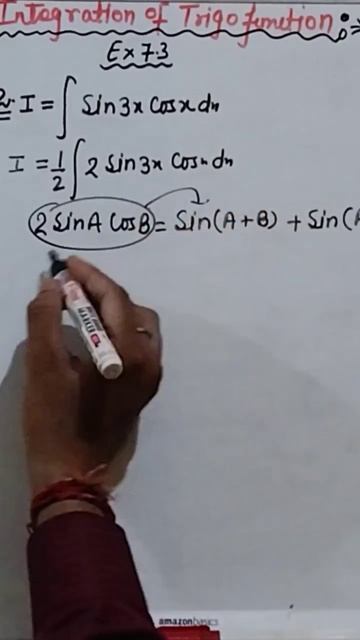 Integration of Trigo function :⇒
Ex 7.3
I = ∫ Sin3x Cosx dx
I = 1/2 ∫ 2 Sin3x Cosx dx
2 SinA CosB = Sin(A+B) + Sin(A
MARKER
amazonbasics